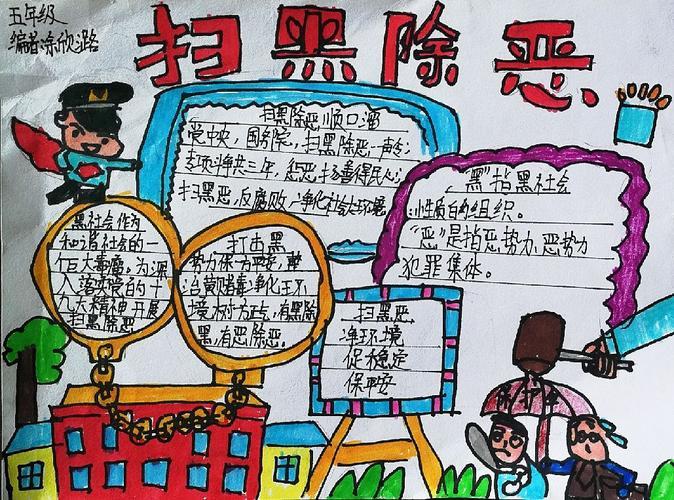 五年级
编者涂欣潞
扫黑除恶
扫黑除恶顺口溜
党中央，国务院，扫黑除恶一声令；
专项斗争共三年，惩恶扬善得民心；
扫黑恶，反腐败，净化社会大环境
"黑"指黑社会
性质的组织。
"恶"是指恶势力、恶势力
犯罪集体。
黑社会作为
和谐社会的一
个巨大毒瘤。为深
入落实党的十
九大精神开展
扫黑除恶
打击黑
势力保一方平安，
治黄赌毒净化环
境树方正，有黑除
黑，有恶除恶。
扫黑恶
净环境
促稳定
保平安
保护伞